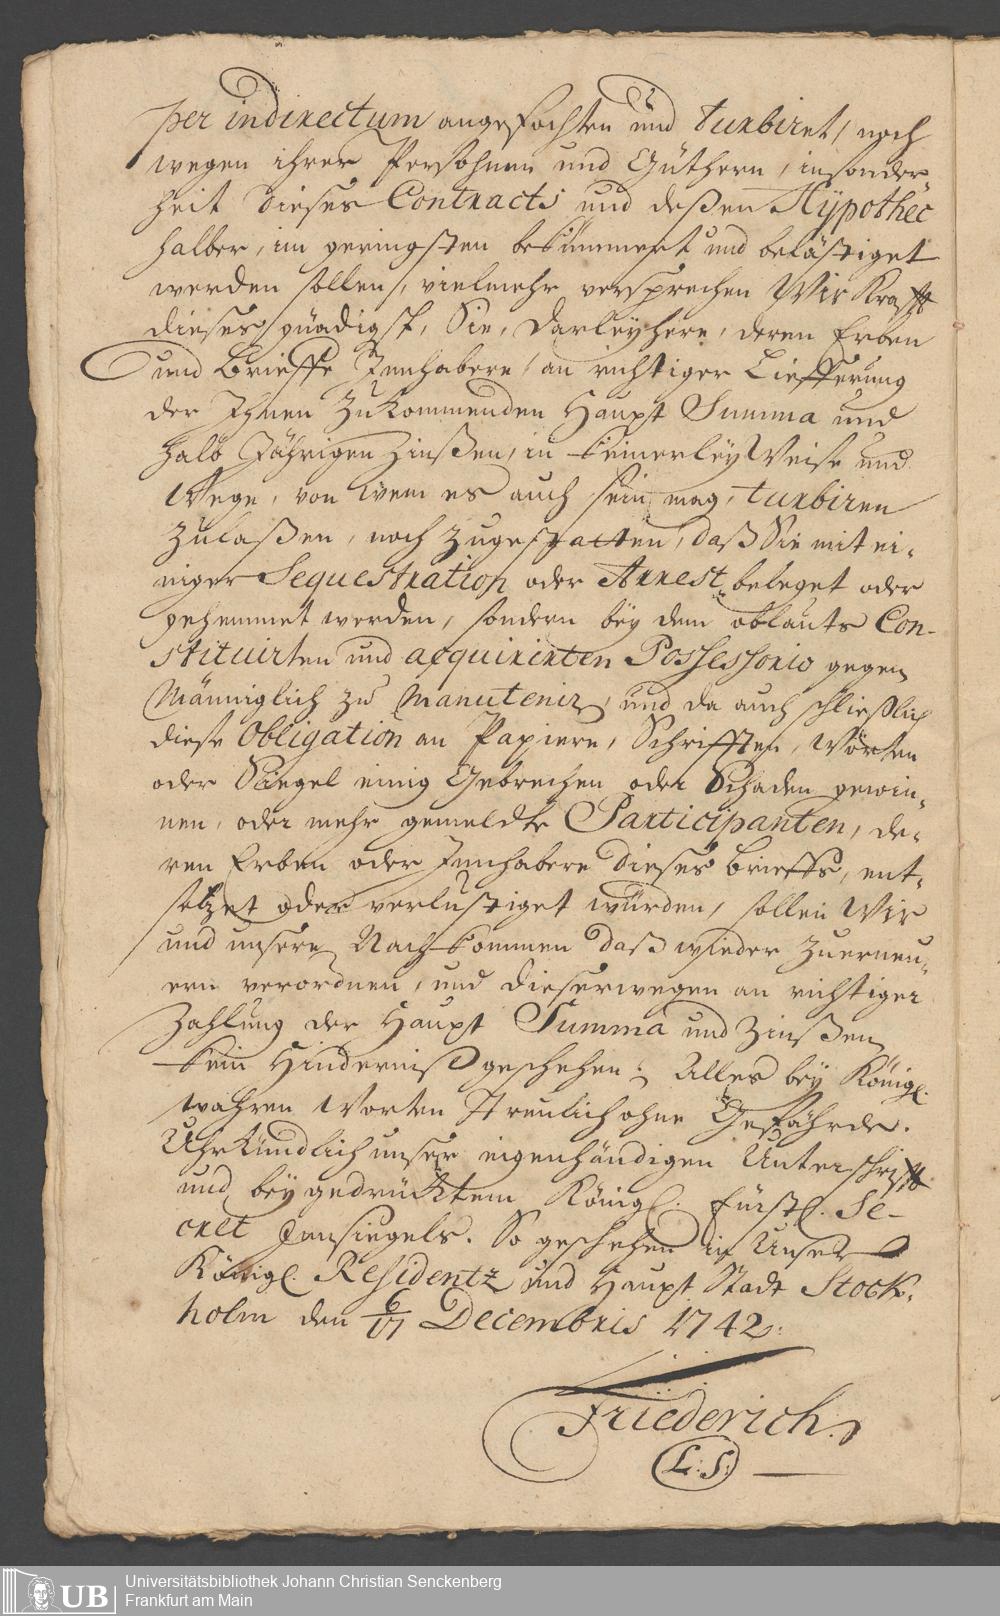 per indirectum angefochten und turbiret, noch
wegen ihrer Persohnen und Güthern, insonder-
heit dieses Contracts und deßen Hypothec
halber, im geringsten bekümmert und belästiget
werden sollen, vielmehr versprechen Wir Krafft
dieses gnädigst, Sie, Darleyhere, deren Erben
und Brieffs Innhabere, an richtiger Liefferung
der Ihnen Zukommenden Haupt Summa und
halb Jährigen Zinßen, in keinerley Weise und
Wege, von wem es auch sein mag, turbiren
Zulaßen, noch zugestatten, daß Sie mit ei-
niger Sequestration oder Arrest beleget oder
gehemmet werden, sondern bey dem oblauts Con-
stituirten und acquirirten Possessorio gegen
Männiglich zu manuteniren, und da auch schließlich
diese Obligation an Papiere, Schrifften, Worten
oder Siegel einig Gebrechen oder Schaden gewin-
nen, oder mehr gemeldte Participanten, de-
ren Erben oder Innhabere dieses Brieffs, ent-
setzet oder verlustiget würden, sollen Wir
und unsere Nachkommen daß wieder Zuerneu-
ern verordnen, und dieserwegen an richtiger
Zahlung der Haupt Summa und Zinßen
kein Hinderniß geschehen; Alles bey Königl.
wahren Worten Treulich ohne Gefährde.
Uhrkündlich unser eigenhändigen Unterschrifft
und beygedrücktem Königl. Fürstl. Se-
cret Innsiegels. So geschehen in Unser
Königl. Residentz und Haupt Stadt Stock-
holm den 6/17 Decembris 1742.
Friederich.
L: S:
UB
Universitätsbibliothek Johann Christian Senckenberg
Frankfurt am Main